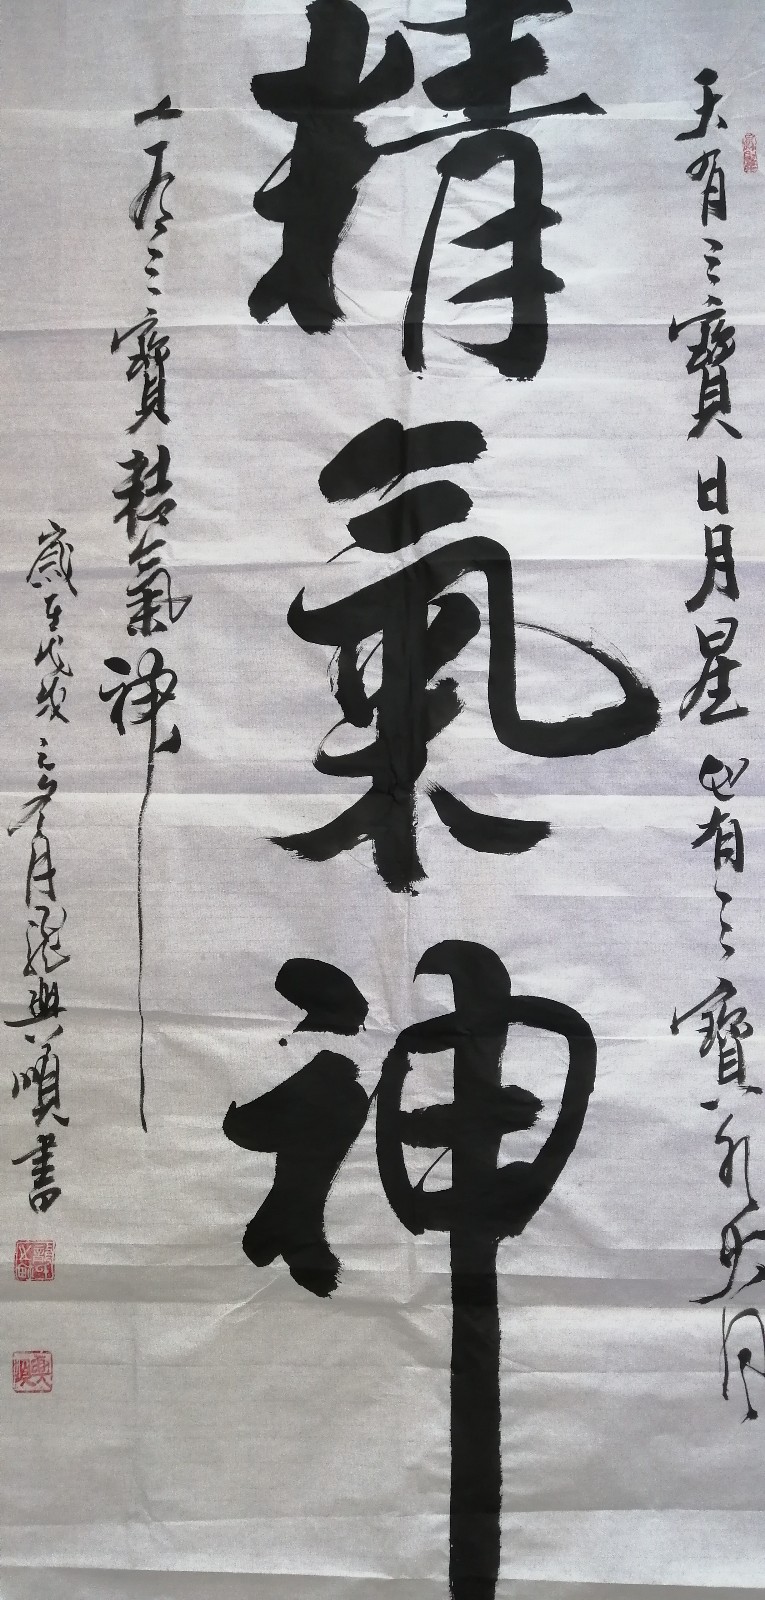 天有三寶日月星地有三寶水火风
精氣神
人有三寶精氣神
歲在戊戌之冬月龍興順書